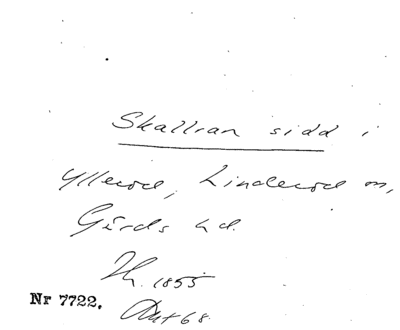 Skallran sidd i
Yllerod, Linderod sn,
Gärds hd.
1855
Nr 7722.